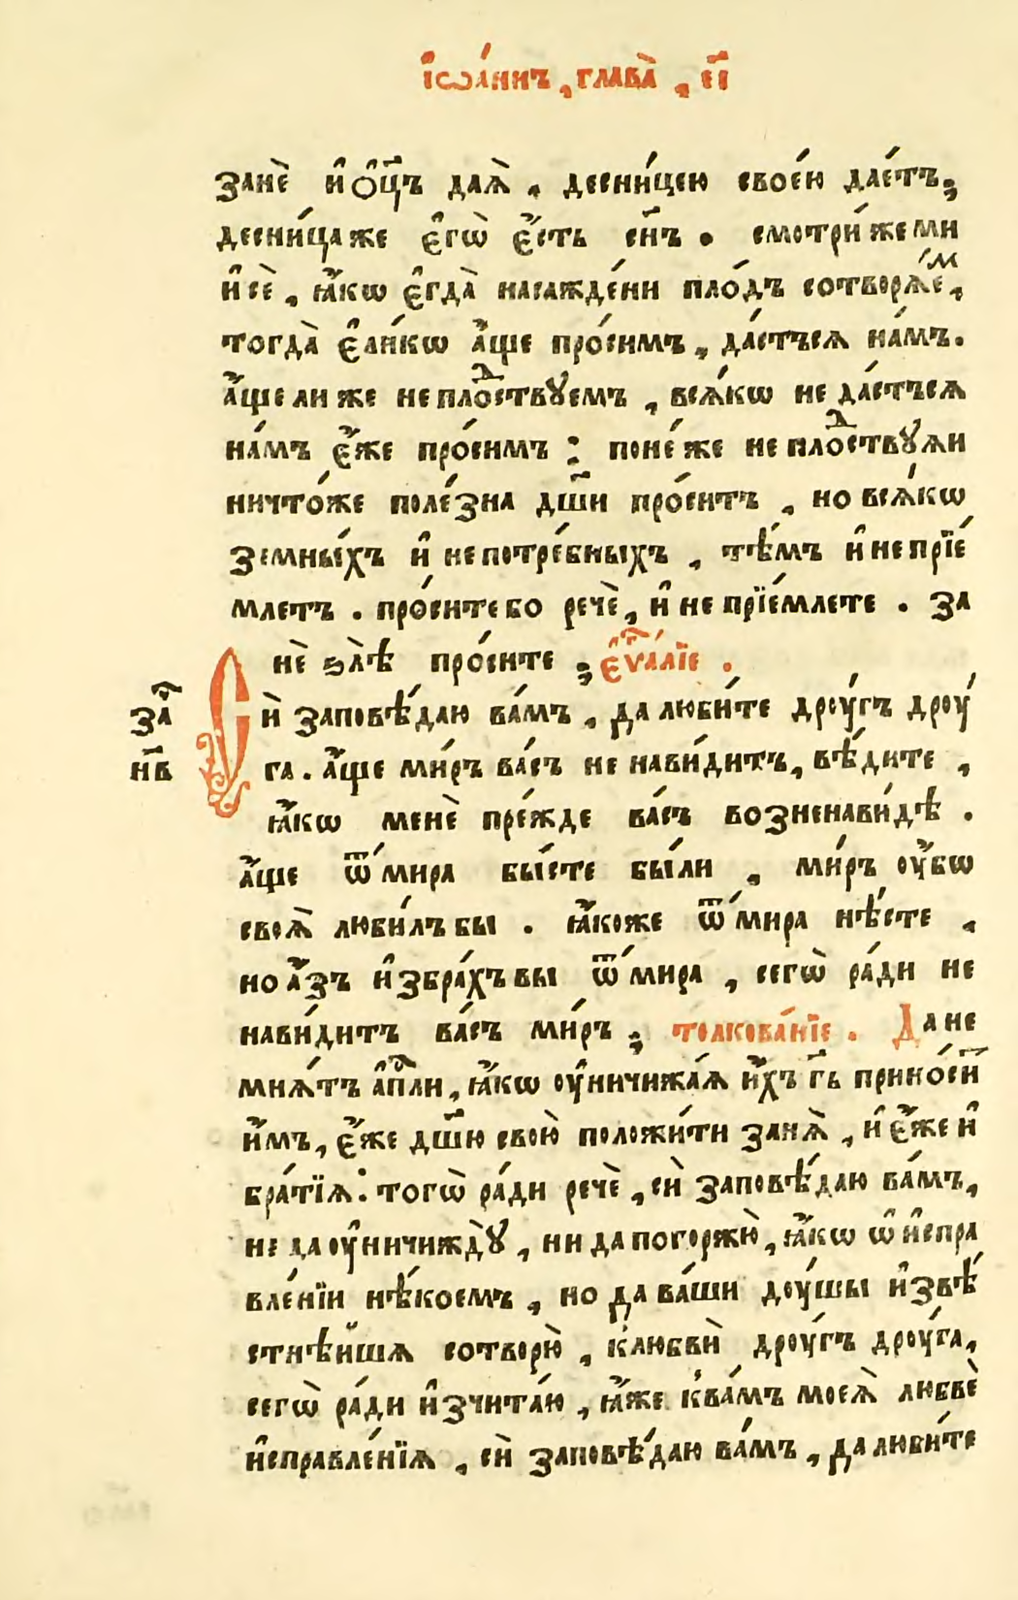 І҆ѡа́ннъ, глава̀, є҃і
занѐ и҆ О҆ц҃ъ даѧ̀, десни́цею свое́ю дае́тъ;
десни́цаже є҆гѡ̀ є҆́сть сн҃ъ. смотри́ же ми
и҆ сѐ, ꙗ҆́кѡ є҆гда̀ насажде́ни пло́дъ сотворѧ́еⷨ,
тогда̀ є҆ли́кѡ а҆́ще про́симъ, да́стъсѧ на́мъ.
а҆́ще ли же не плоⷣствꙋемъ, всѧ́кѡ не да́стъсѧ
на́мъ є҆́же про́симъ: поне́же не плоⷣствꙋѧи
ничто́же поле́зна дш҃и про́ситъ, но всѧ́кѡ
земны́хъ и҆ непотре́бныхъ, тѣ́мъ и҆ не прїе́
млетъ. про́сите бо речѐ, и҆ не прїе́млете. за
нѐ ѕлѣ̀ про́сите; є҆ѵⷢ҇алїе.
Сїѧ̀ заповѣ́даю ва́мъ, да люби́те дрꙋ́гъ дрꙋ́
заⷱ҇
н҃в
га. а҆́ще ми́ръ ва́съ не нави́дитъ, вѣ́дите,
ꙗ҆́кѡ менѐ пре́жде ва́съ возненави́дѣ.
а҆́ще ѿ ми́ра бы́сте бы́ли, ми́ръ оу҆́бѡ
своѧ̀ люби́лъ бы. ꙗ҆́коже ѿ ми́ра нѣ́сте,
но а҆́зъ и҆збра́хъ вы ѿ ми́ра, сегѡ̀ ра́ди не
нави́дитъ ва́съ ми́ръ; толкова́нїе. Да не
мнѧ́тъ а҆пⷭ҇ли, ꙗ҆́кѡ оу҆ничижа́ѧ и҆́хъ гд҃ь прино́ситъ
и҆́мъ, є҆́же дш҃ю свою̀ положи́ти занѧ̀, и҆ є҆́же и҆
бра́тїѧ. тогѡ̀ ра́ди речѐ, сїѧ̀ заповѣ́даю ва́мъ,
не да оу҆ничиждꙋ̀, ни да погоржю̀, ꙗ҆́кѡ ѡ҆ и҆спра
вле́нїи нѣ́коемъ, но да ва́ши доу́шы и҆звѣ́
стнѣ́йшѧ сотворю̀, клюбвѝ дрꙋ́гъ дрꙋ́га,
сегѡ̀ ра́ди и҆зчита́ю, ꙗ҆́же ква́мъ моеѧ̀ любвѐ
и҆справле́нїѧ, сїѧ̀ заповѣ́даю ва́мъ, да люби́те